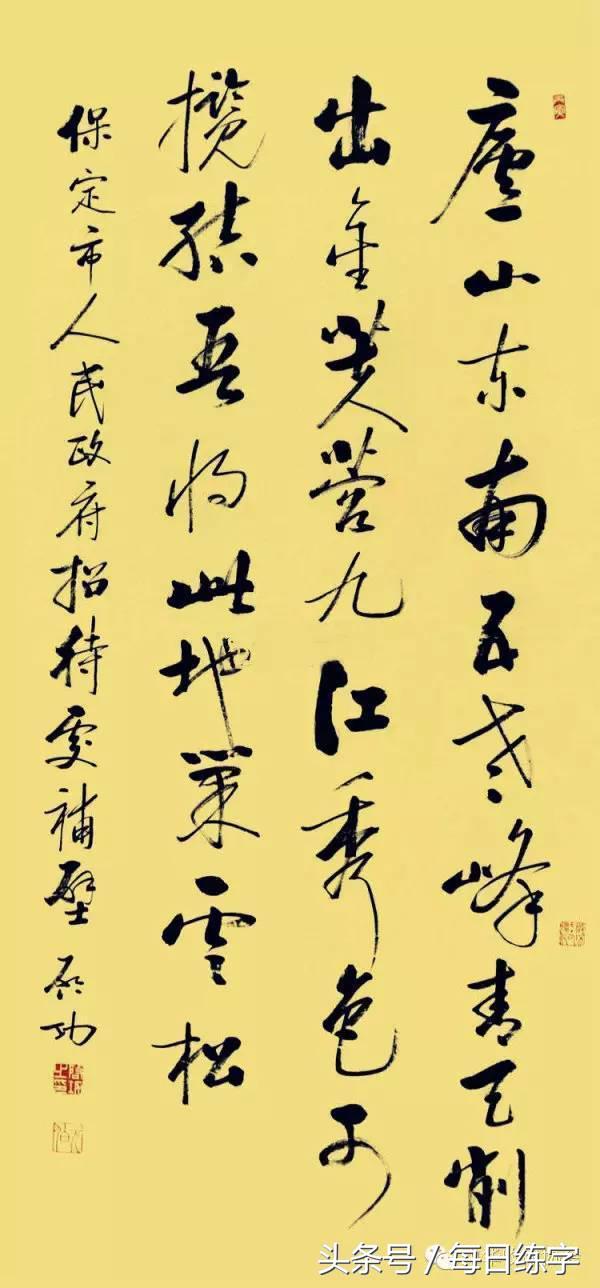 廬山东南五老峰青天削
出金芙蓉九江秀色可
攬結吾将此地巢雲松
保定市人民政府招待處補壁 启功
头条号 / 每日练字